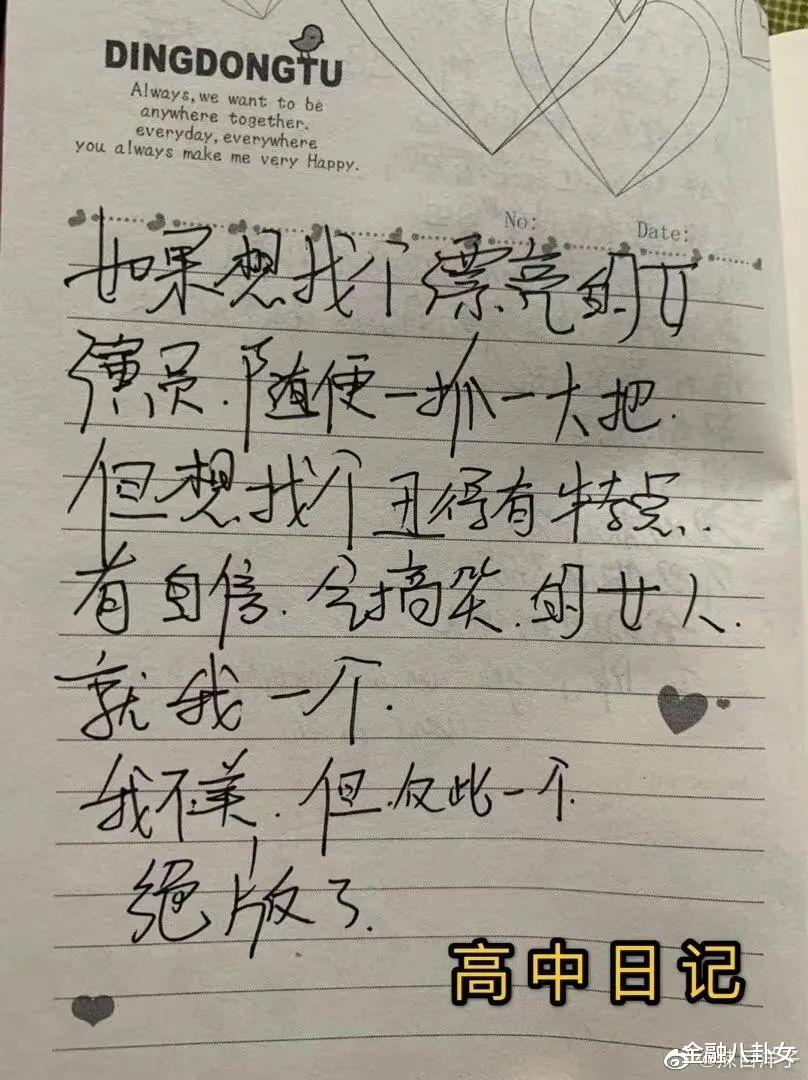 DINGDONGTU
Always, we want to be
anywhere together.
everyday, everywhere
you always make me very Happy.
No:
Date:
如果想找个漂亮的女
演员.随便一抓一大把.
但想找个丑得有特点.
有自信.会搞笑.的女人.
就我一个.
我不美.但.仅此一个.
绝版了.
高中日记
金融八卦女